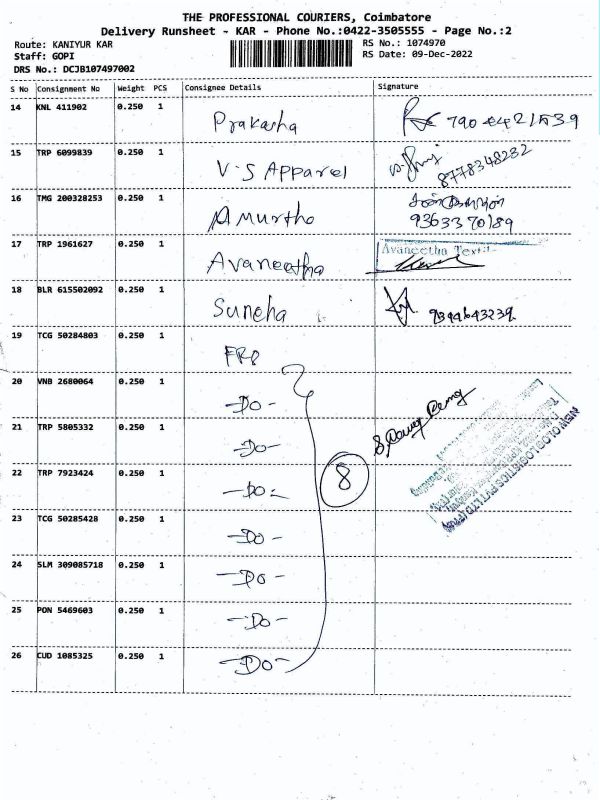 THE PROFESSIONAL COURIERS, Coimbatore
Delivery Runsheet ~ KAR - Phone No.:0422-3505555 - Page No.:2
Route: KANIYUR KAR
RS No.: 1074970
Staff: GOPI
RS Date: 09-Dec-2022
DRS No.: DCJB107497002
S No Consignment No Weight PCS Consignee Details Signature
14 KNL 411902 0.250 1 Prakasha
15 TRP 6099839 0.250 1 V.S Apparel 8778348232
16 TMG 200328253 0.250 1 Amurtha 9363370189
17 TRP 1961627 0.250 1 Avaneetha Avaneetha
18 BLR 615502092 0.250 1 Suneha 9344643239
19 TCG 50284803 0.250 1
20 VNB 2680064 0.250 1 -Do-
21 TRP 5805332 0.250 1 -Do-
22 TRP 7923424 0.250 1 -Do-
8
23 TCG 50285428 0.250 1 -Do-
24 SLM 309085718 0.250 1 -Do-
25 PON 5469603 0.250 1 -Do-
26 CUD 1085325 0.250 1 -Do-